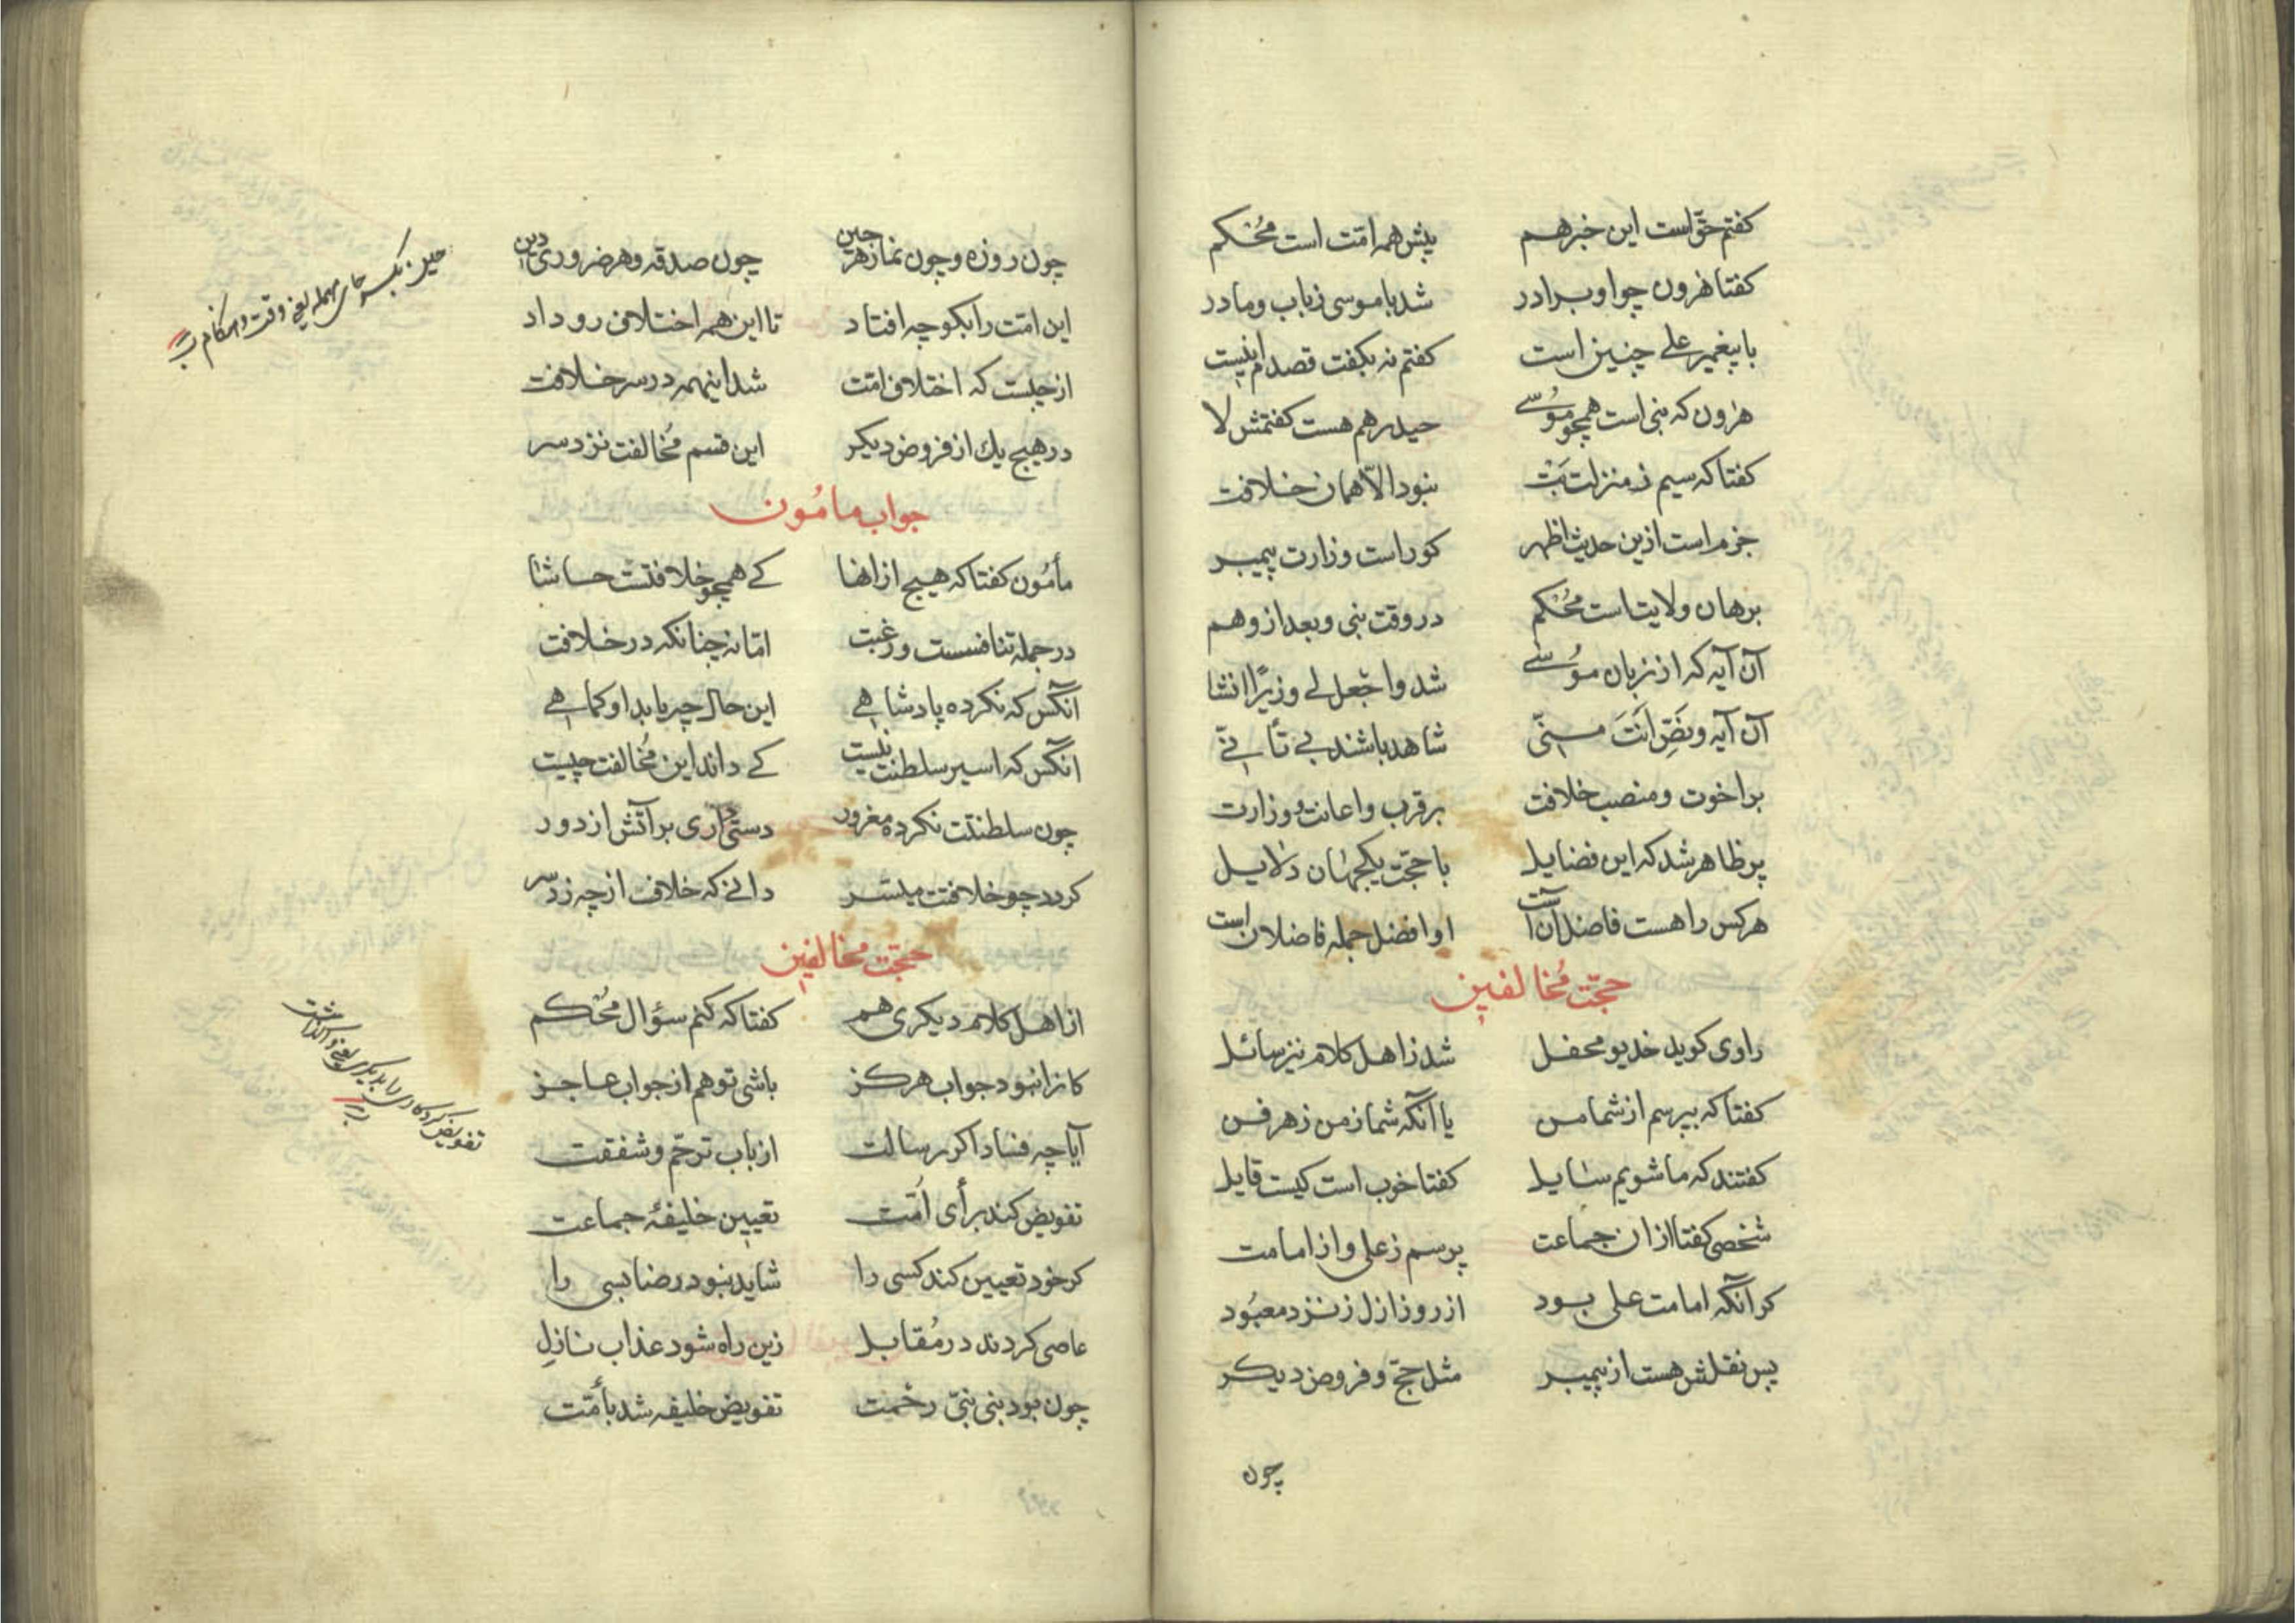 کفتم حقّ است این خبر هم پیش همه امّت است مُحْکم
کفتا هٰرون چو او برادر شد با موسی ز باب و مادر
با پیغمبر علی چنین است کفتم نه بکفت قصدم اینست
هٰرون که نبی است همچو موُسٰے حیدر هم هست کفتمش لا
کفتا که سیم ز منزلت نبود الّا همان خلافت
جزم است ازین حدیث اظهر کوراست وزارت پیمبر
برهان ولایت است مُحْکم در وقت نبی و بعد از و هم
آن آیه که از زبان موُسٰے شد واجْعل لی وزیرًا انشا
آن آیه و نصّ اَنتَ منّی شاهد باشند بی تأنّی
بر اخوت و منصب خلافت بر قرب و اعانت و وزارت
پر ظاهر شد که این فضایل با حجّت یکجهان دلایل
هر کس را هست فاضل آن است او افضل جمله فاضلان است
حجّت مُخالفین
راوی کوید خدیو محفل شد ز اهل کلام نیز سائل
کفتا که بپرسم از شما من یا آنکه شما ز من ز هر فن
کفتند که ما شویم سایل کفتا خوب است کیست قایل
شخصی کفتا ازان جماعت پرسم ز علی و از امامت
کر آنکه امامت علی بود از روز ازل ز نزد معبُود
پس نقلش هست از پیمبر مثل حجّ و فروض دیکر
چون
چون روزه و چون نماز هر حین چون صدقه و هر ضروری دین
این امّت را بکو چه افتاد تا این همه اختلاف رو داد
از چیست که اختلاف امّت شد اینهمه در سر خلافت
در هیچ یك از فروض دیکر این قسم مُخالفت نزد سر
جواب مامُون
مأمُون کفتا که هیچ ازانها کے همچو خلافتست حاشا
در جمله تنافست و رغبت امّا نه چنانکه در خلافت
آنکس که نکرده پادشاهی این حال چه یابد او کماهی
آنکس که اسیر سلطنت نیست کے داند این مُخالفت چیست
چون سلطنتت نکرده مغرور دستی داری بر آتش از دور
کردد چو خلافت میسّر دانی که خلافت از چه زد سر
حجّت مخالفین
از اهل کلام دیکری هم کفتا که کنم سؤال مُحْکم
کانرا نبود جواب هرکز باشی تو هم از جواب عاجز
آیا چه فساد اکر رسالت از باب ترحّم و شفقت
تفویض کند برأی اُمّت تعیین خلیفۀ جماعت
کر خود تعیین کند کسی را شاید نبود رضا بسی را
عاصی کردند در مُقابل زین راه شود عذاب نازل
چون بود نبی نبیّ رحْمت تفویض خلیفه شد بأمّت
حین بکسر حای مهمله یعنی وقت و هنکام
تفویض کردن کاری را بدیکری یعنی واکذاشت